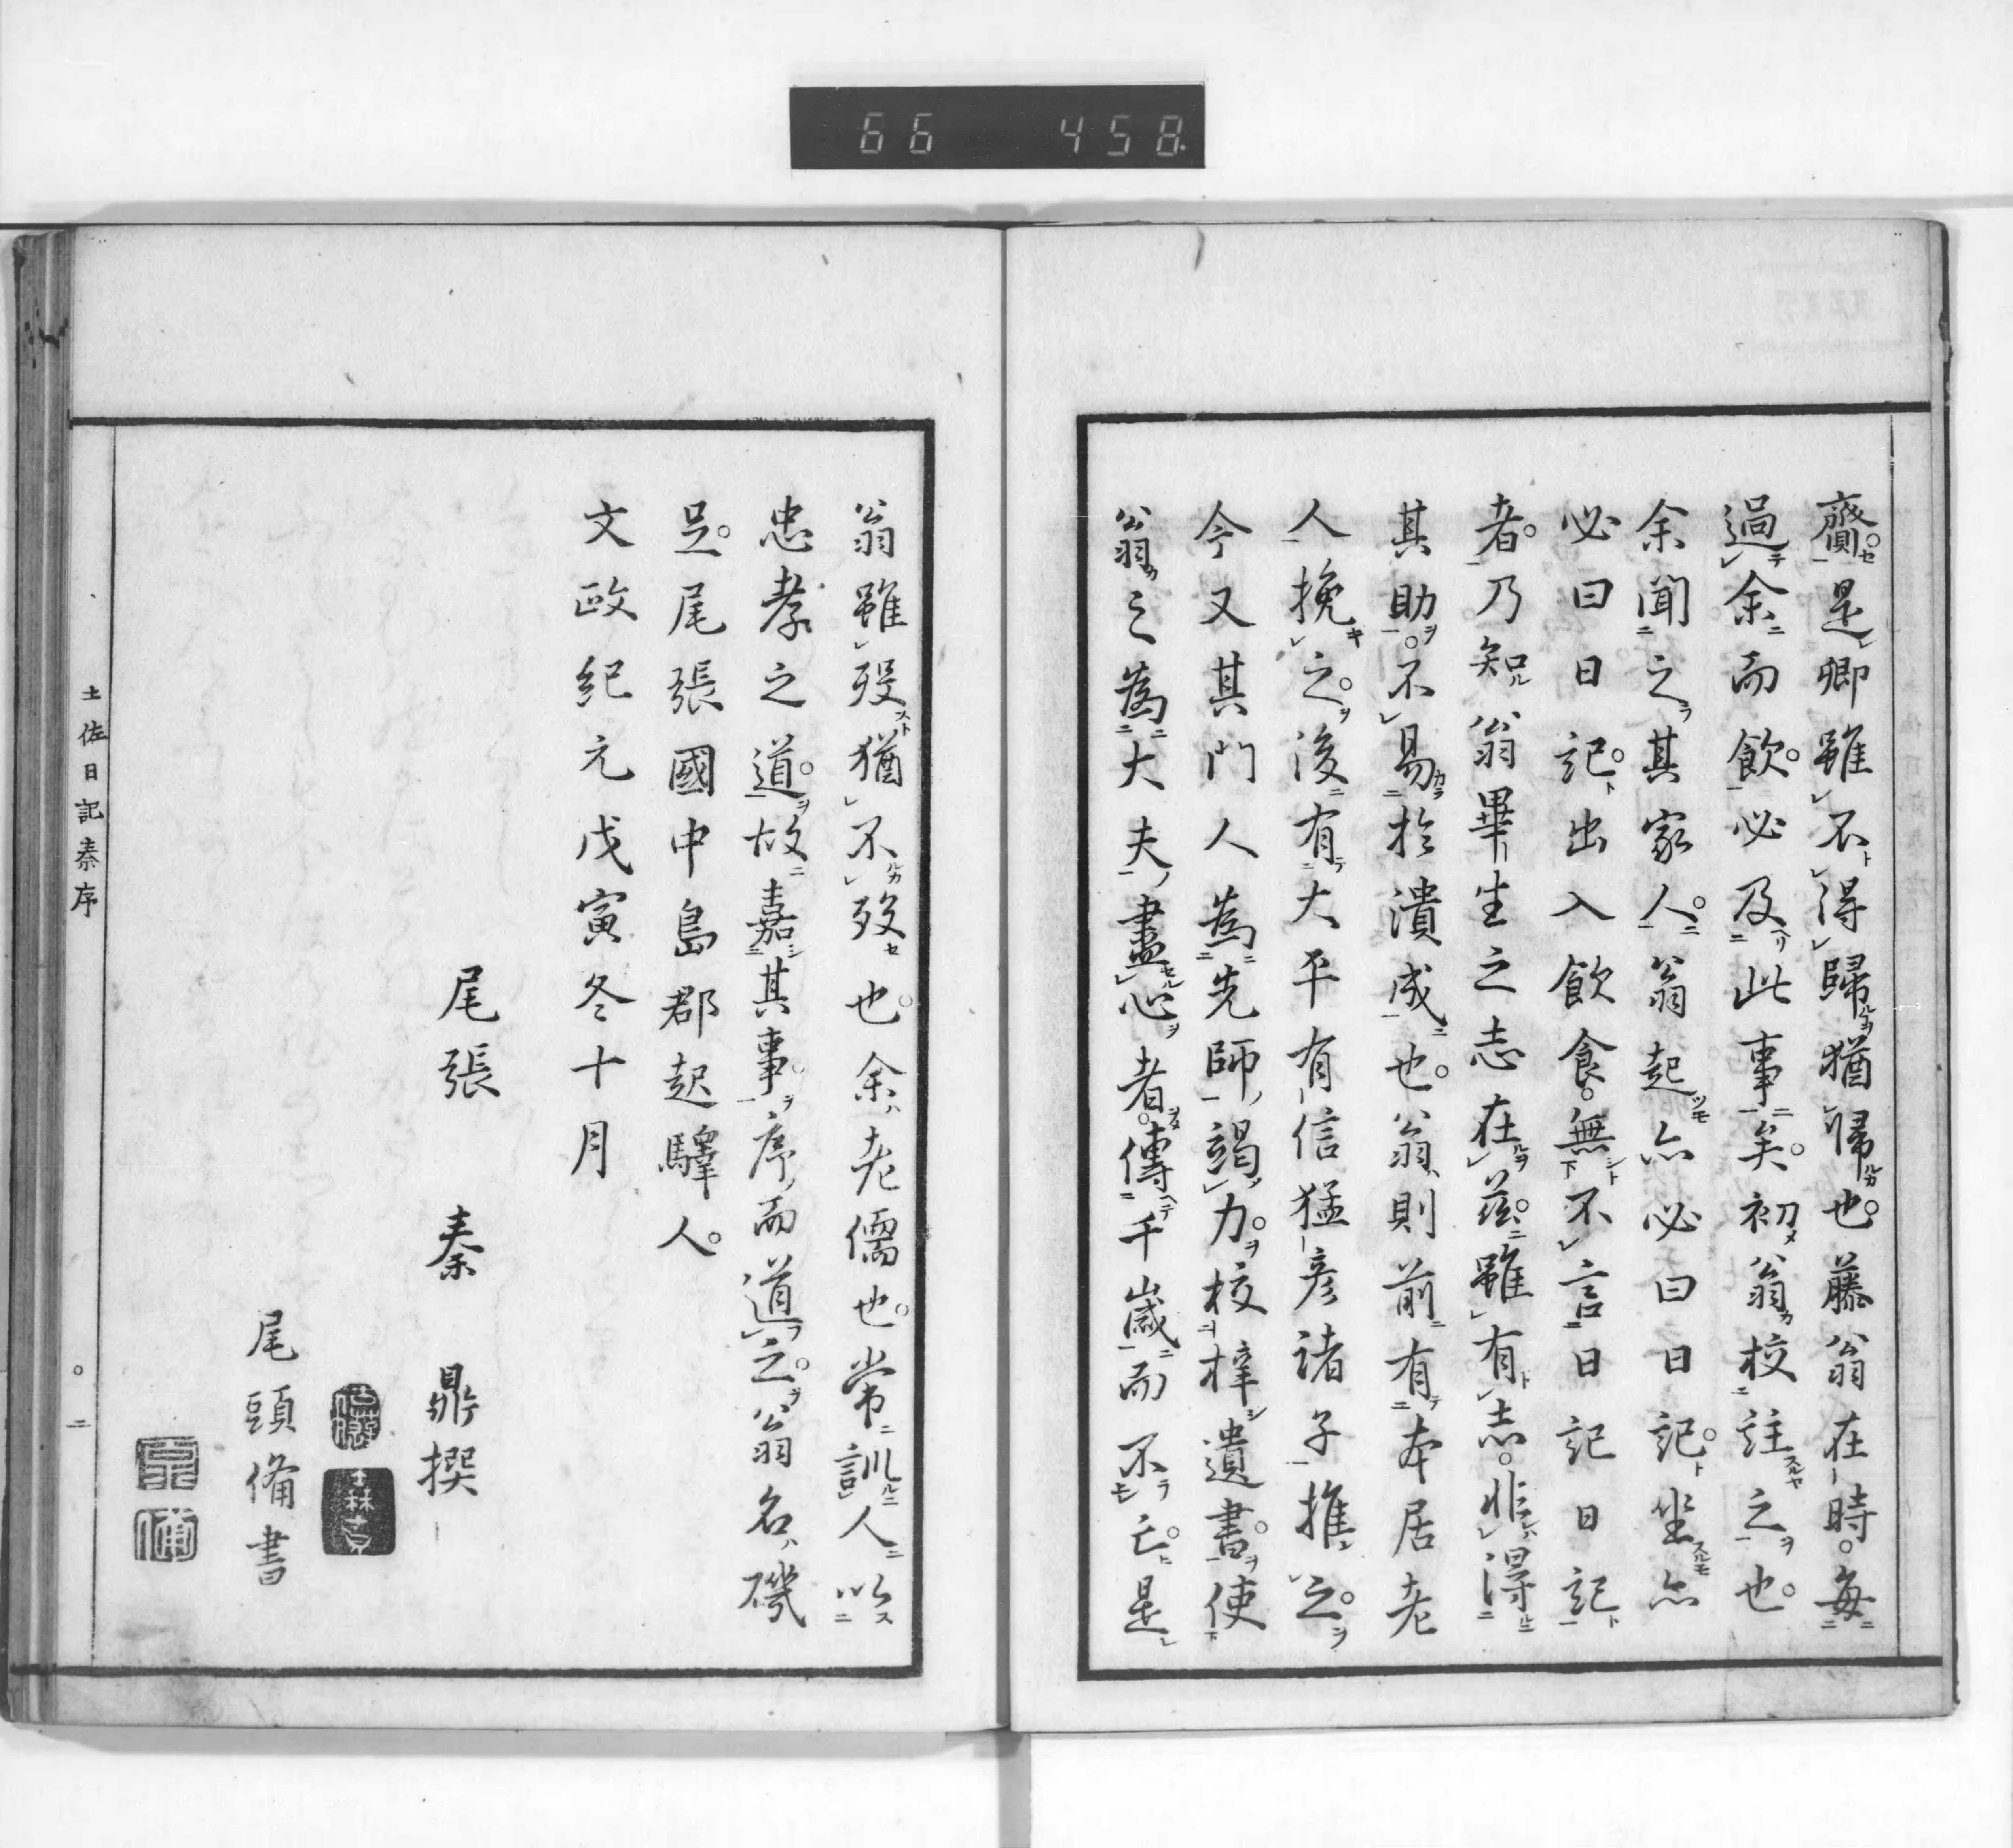 66 458
齎是卿雖不得歸猶歸也藤翁在時每
過余而飲必及此事矣初翁校註之也
余聞之其家人翁起亦必曰日記坐亦
必曰日記出入飲食無不言日記日記
者乃知翁畢生之志在茲雖有志非得
其助不易於潰成也翁則前有本居老
人挽之後有大平有信猛彥諸子推之
今又其門人為先師竭力校梓遺書使
翁之為大夫盡心者傳千歲而不亡是
翁雖歿猶不歿也余老儒也常訓人以
忠孝之道故嘉其事序而道之翁名磯
足尾張國中島郡起驛人
文政紀元戊寅冬十月
尾張 秦 鼎撰
尾頭備書
土佐日記秦序 二